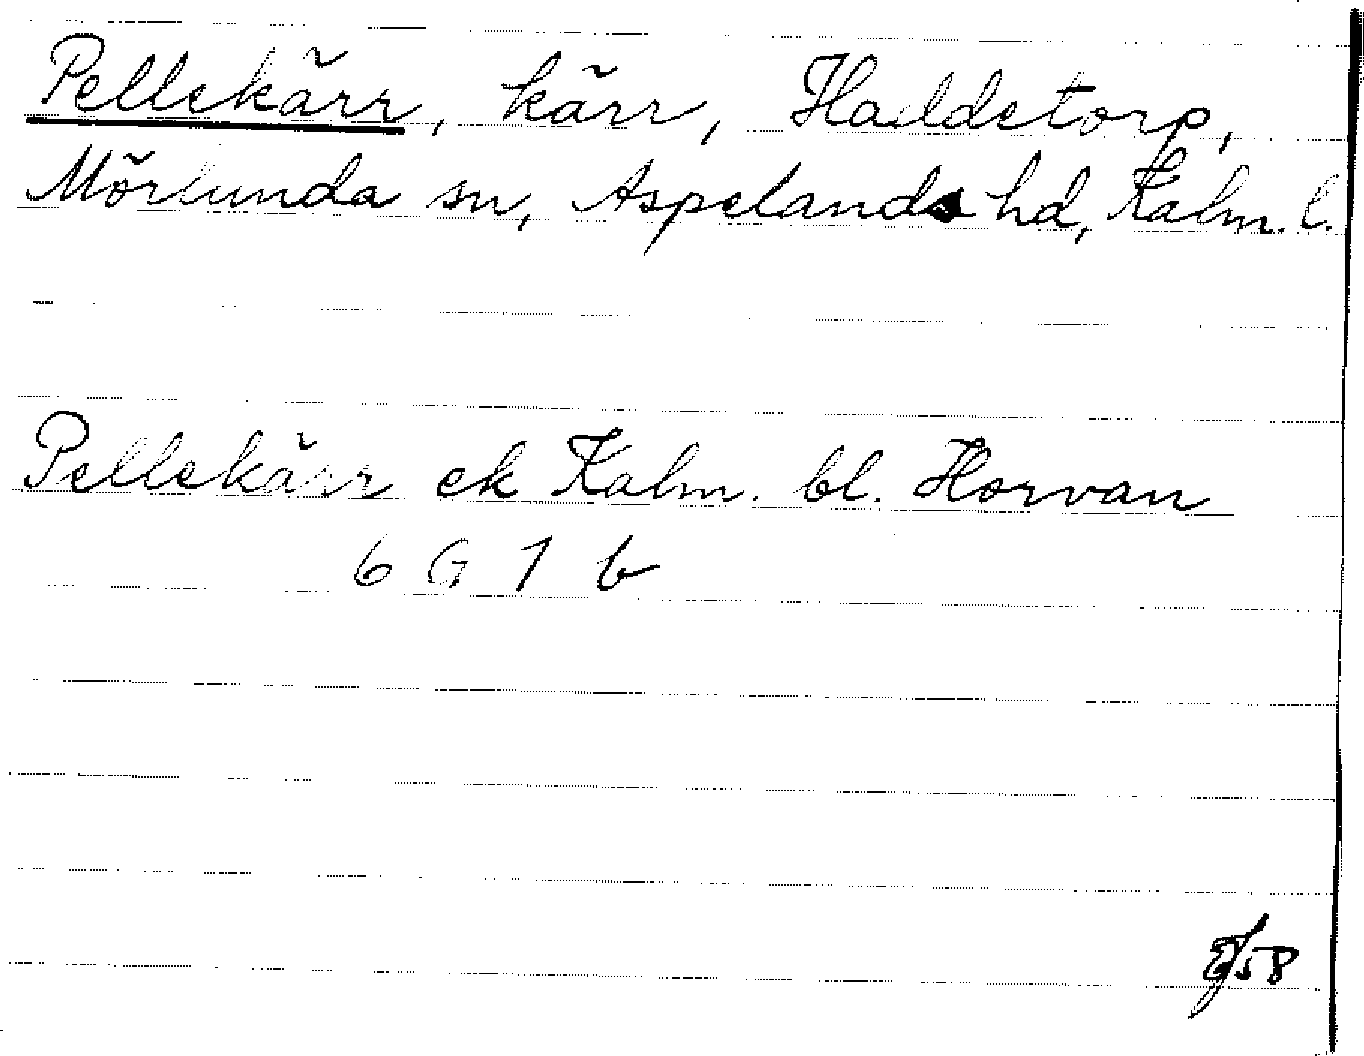 Pellekärr, kärr, Haddetorp,
Mörlunda sn, Aspelands hd, Kalm. l.
Pellekärr ek Kalm. bl. Horvan
6 G 1 b
58